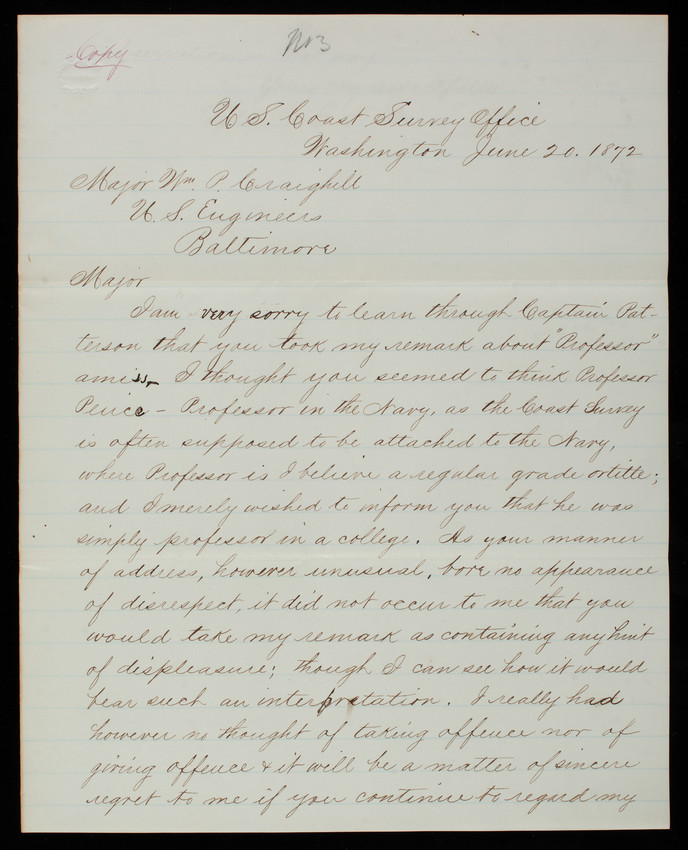 Copy
No 3
U. S. Coast Survey Office
Washington June 20. 1872
Major Wm. P. Craighill
U. S. Engineers
Baltimore
Major
I am very sorry to learn through Captain Pat-
terson that you took my remark about "Professor"
amiss. I thought you seemed to think Professor
Peirce - Professor in the Navy, as the Coast Survey
is often supposed to be attached to the Navy,
where Professor is I believe a regular grade or title;
and I merely wished to inform you that he was
simply professor in a college. As your manner
of address, however unusual, bore no appearance
of disrespect, it did not occur to me that you
would take my remark as containing any hint
of displeasure; though I can see how it would
bear such an interpretation. I really had
however no thought of taking offence nor of
giving offence & it will be a matter of sincere
regret to me if you continue to regard my